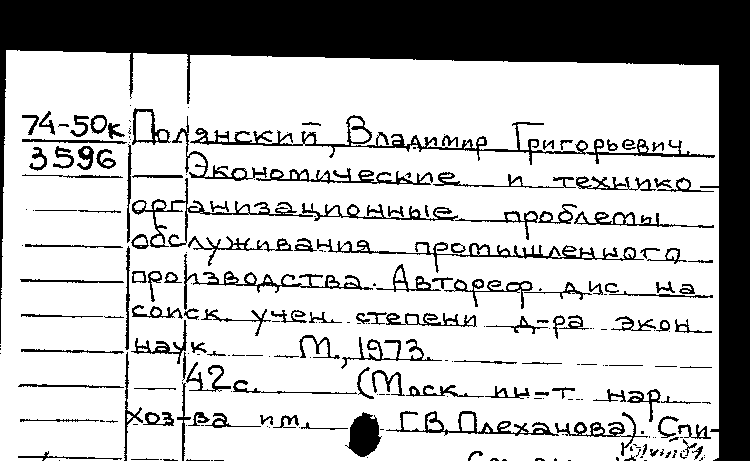 74-50к Полянский, Владимир Григорьевич.
3596 Экономические и технико-
организационные проблемы
обслуживания промышленного
производства. Автореф. дис. на
соиск. учен. степени д-ра экон.
наук. М., 1973.
42с. (Моск. ин-т нар.
хоз-ва им. Г.В. Плеханова). Спи-